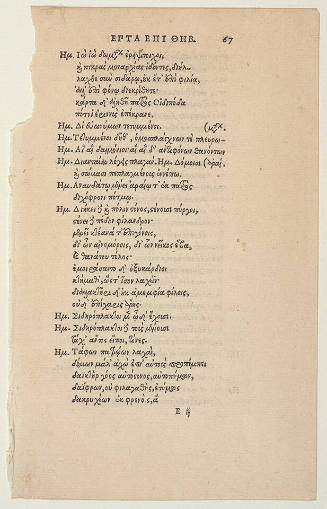 ΕΡΤΑ ΕΠΙ ΘΗΒ. 67
Ημ. Ἰὼ ἰὼ δωμάτων ἐρειψίτοιχοι,
ἢ πικρὰς μοναρχίας ἰδόντες, διηλ-
λαχθε σὺν σιδάρῳ, οὐκ ἔτ' ἐπὶ φιλίᾳ,
ἀλλ' ἐπὶ φόνῳ διεκρίθητε·
κάρτα δ' ἀληθῆ πατρὸς Οἰδιπόδα
πότνι' ἐρινὺς ἐπέκρανε.
Ημ. Δι' εὐωνύμων τετυμμένοι. (μάτων.
Ημ. Τετυμμένοι δῆθ', ὁμοσπλάγχνων τε πλευρω-
Ημ. Αἲ αἲ δαιμόνιοι αἲ αἲ δ' ἀντιφόνων θανάτων
Ημ. Διανταίαν λέγεις πλαγάν. Ημ. Δόμοισι (ἀραί.
ἢ σώμασι πεπλαγμένους ἐνέπω.
Ημ. Ἀναυδάτῳ μένει ἀραίῳ τ' ἐκ πατρὸς
διχόφρονι πότμῳ.
Ημ. Διήκει δὲ ἢ πόλιν στόνος, στένουσι πύργοι,
στένει δὲ πέδον φίλανδρον·
μένει κτέανα τ' ἐπιγόνοις,
δι' ὧν αἰνομόροις, δι' ὧν νεῖκος ἔβα,
καὶ θανάτου τέλος·
ἐμοιράσαντο δ' ὀξυκάρδιοι
κτήμαθ', ὥστ' ἴσον λαχεῖν
διαλλακτῆρι δ' οὐκ ἀμεμφία φίλοις,
οὐδ' ἐπίχαρις ἄρης.
Ημ. Σιδηρόπλακτοι μὲν ὧδ' ἔχουσι.
Ημ. Σιδηρόπλακτοι δὲ τοὺς μένουσι
τάχ' ἄν τις εἴποι, τίνες.
Ημ. Τάφων πατρῴων λαχαί,
δόμων μάλ' ἀχὼ ἐπ' αὐτοὺς προπέμπει
δαϊκτὴρ γόος αὐτόστονος, αὐτοπήμων,
δαΐφρων, οὐ φιλαγαθὴς, ἐτύμως
δακρυχέων ἐκ φρενὸς, ἃ
E ij